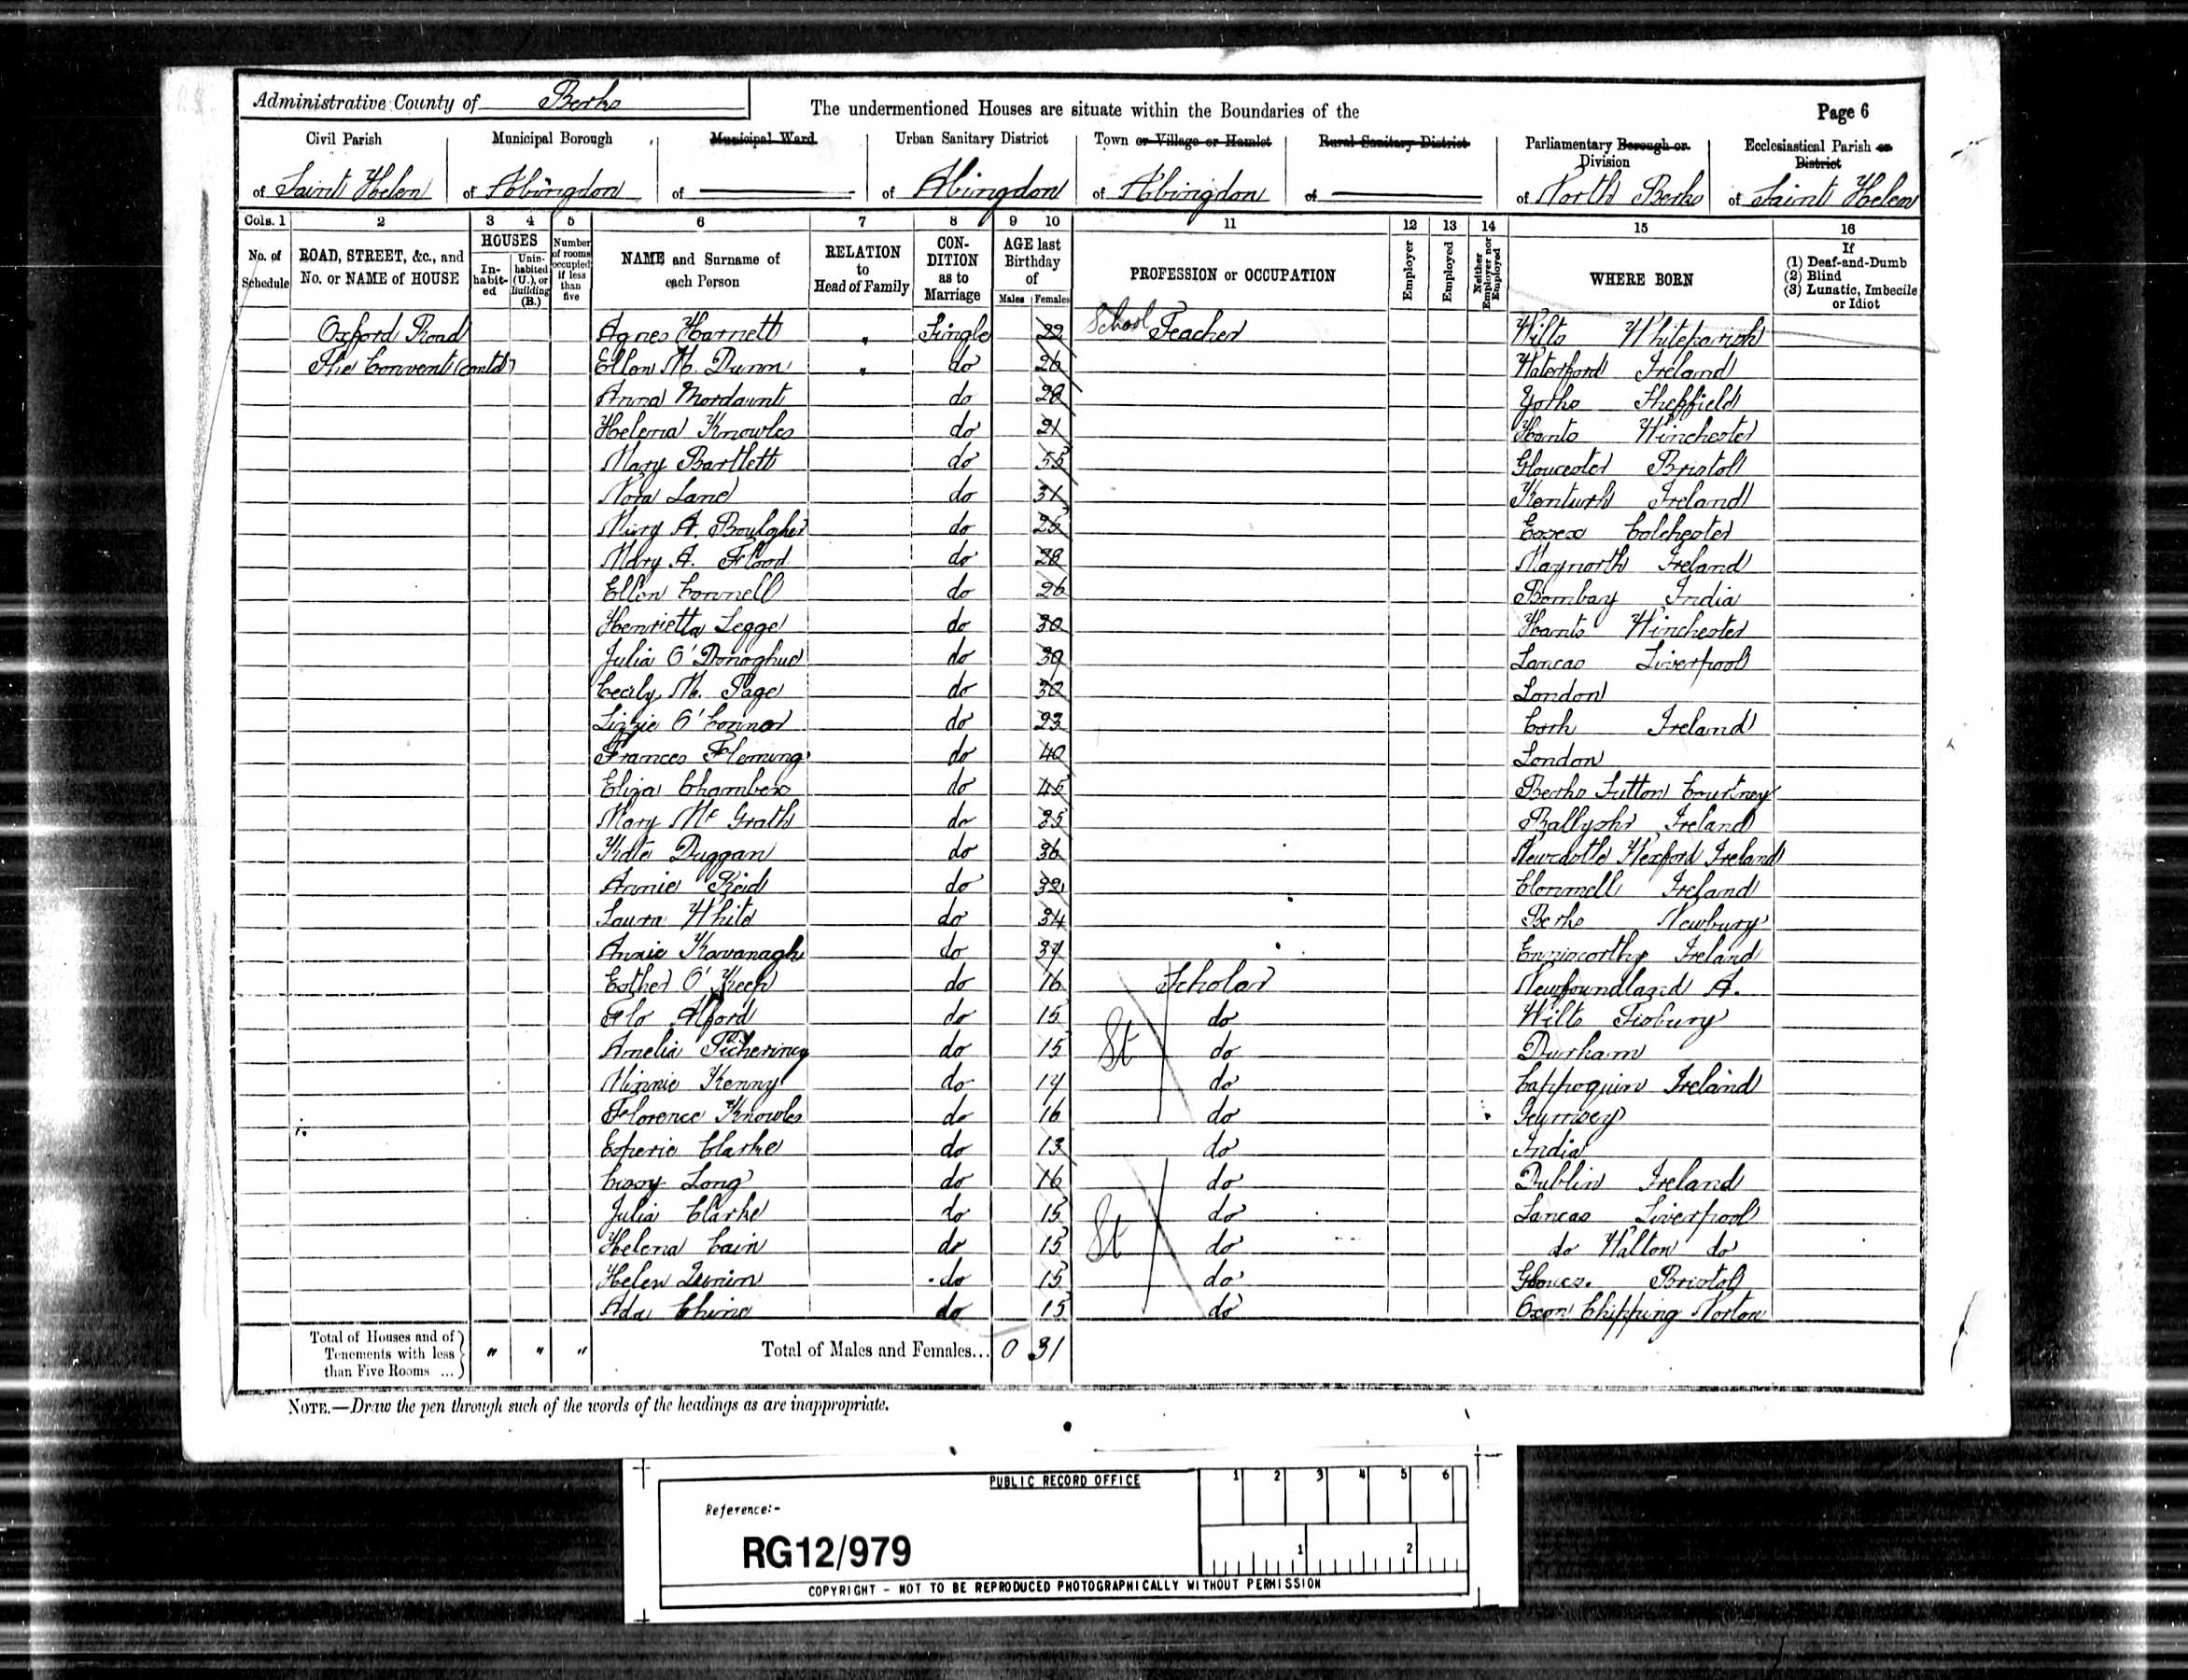 Administrative County of Berks
The undermentioned Houses are situate within the Boundaries of the
Page 6
Civil Parish
of Saint Helen
Municipal Borough
of Abingdon
Municipal Ward
of
Urban Sanitary District
of Abingdon
Town or Village or Hamlet
of Abingdon
Rural Sanitary District
of
Parliamentary Borough or
Division
of North Berks
Ecclesiastical Parish or
District
of Saint Helen
Cols. 1 2 3 4 5 6 7 8 9 10 11 12 13 14 15 16
No. of Schedule
ROAD, STREET, &c., and No. or NAME of HOUSE
HOUSES
In-habit-ed
Unin-habited (U.), or Building (B.)
Number of rooms occupied if less than five
NAME and Surname of each Person
RELATION to Head of Family
CON-DITION as to Marriage
AGE last Birthday of
Males Females
PROFESSION or OCCUPATION
Employer
Employed
Neither Employer nor Employed
WHERE BORN
If
(1) Deaf-and-Dumb
(2) Blind
(3) Lunatic, Imbecile or Idiot
Oxford Road Agnes Harnett " Single 22 School Teacher Wilts Whiteparish
The Convent (contd) Ellen M. Dunn " do 26 Waterford Ireland
Anna Mordaunt do 28 Yorks Sheffield
Helena Knowles do 21 Hants Winchester
Mary Bartlett do 55 Gloucester Bristol
Nora Lane do 31 Kenturk Ireland
Mary A. Boulgher do 25 Essex Colchester
Mary A. Flood do 28 Maynorth Ireland
Ellen Connell do 26 Bombay India
Henrietta Legge do 30 Hants Winchester
Julia O'Donoghue do 39 Lancas Liverpool
Cecily M. Page do 30 London
Lizzie O'Connor do 23 Cork Ireland
Frances Fleming do 40 London
Eliza Chambers do 45 Berks Sutton Courtney
Mary Mc Grath do 35 Ireland
Kate Duggan do 36 Newcastle Wexford Ireland
Annie Reid do 32 Clonmell Ireland
Laura White do 34 Berks Newbury
Annie Kavanagh do 37 Enniscorthy Ireland
Esther O'Keep do 16 Scholar Newfoundland A.
Flo Alford do 15 do Wilts Tisbury
Amelia Pickering do 15 St do Durham
Minnie Kenny do 14 do Cappoquin Ireland
Florence Knowles do 16 do
Clarke do 13 do India
Cissy Long do 16 do Dublin Ireland
Julia Clarke do 15 do Lancas Liverpool
Helena Cain do 15 St do do Walton do
Helen do 15 do Glouces. Bristol
Ada do 15 do Oxon Chipping Norton
Total of Houses and of
Tenements with less
than Five Rooms ... " " "
Total of Males and Females... 0 31
NOTE.—Draw the pen through such of the words of the headings as are inappropriate.
PUBLIC RECORD OFFICE
1 2 3 4 5 6
Reference:-
RG12/979
1 2
COPYRIGHT - NOT TO BE REPRODUCED PHOTOGRAPHICALLY WITHOUT PERMISSION